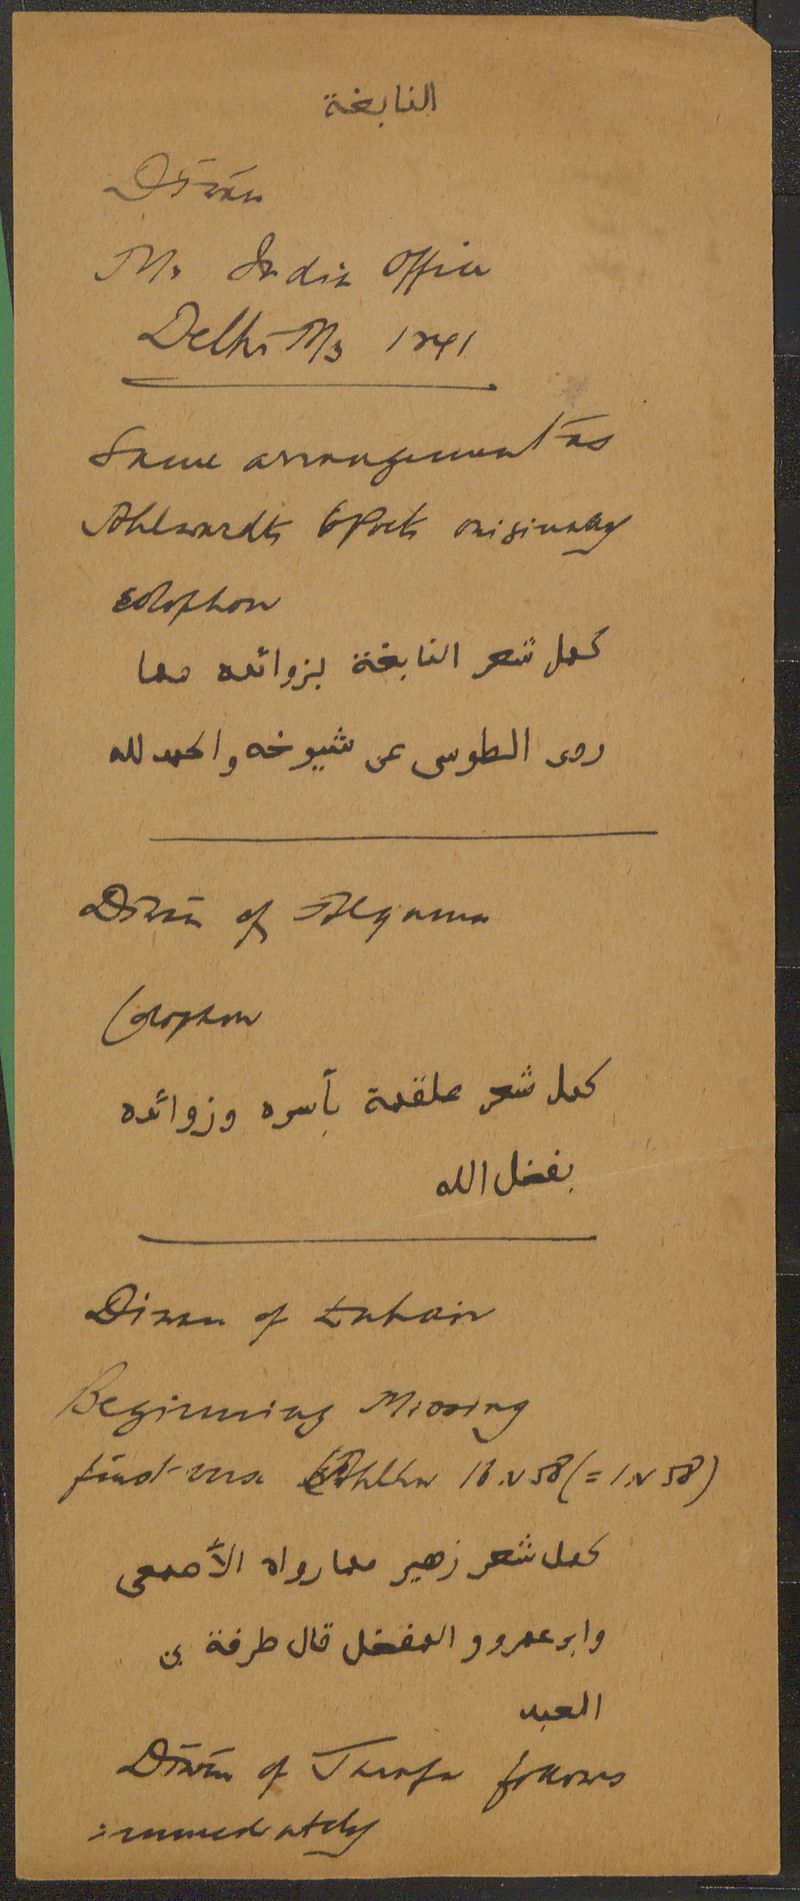 النابغة
Dīwān
Ms India Office
Delhi Ms 1241
Same arrangement as
Ahlwardts 6 Poets originally
colophon
كمل شعر النابغة بزوائده مما
روى الطوسى عن شيوخه والحمد لله
Dīwān of Alqama
Colophon
كمل شعر علقمة بأسره وزوائده
بفضل الله
Diwan of Zuhair
Beginning Missing
first verse 16 v 58 (= 1. v 58)
كمل شعر زهير مما رواه الأصمعى
وابو عمرو و المفضل قال طرفة بن
العبد
Dīwān of Tarafa follows
immediately